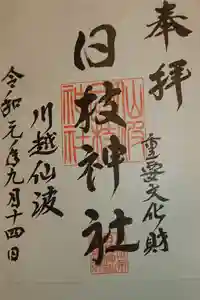 奉拝
重要文化財
日枝神社
川越仙波
令和元年九月十四日